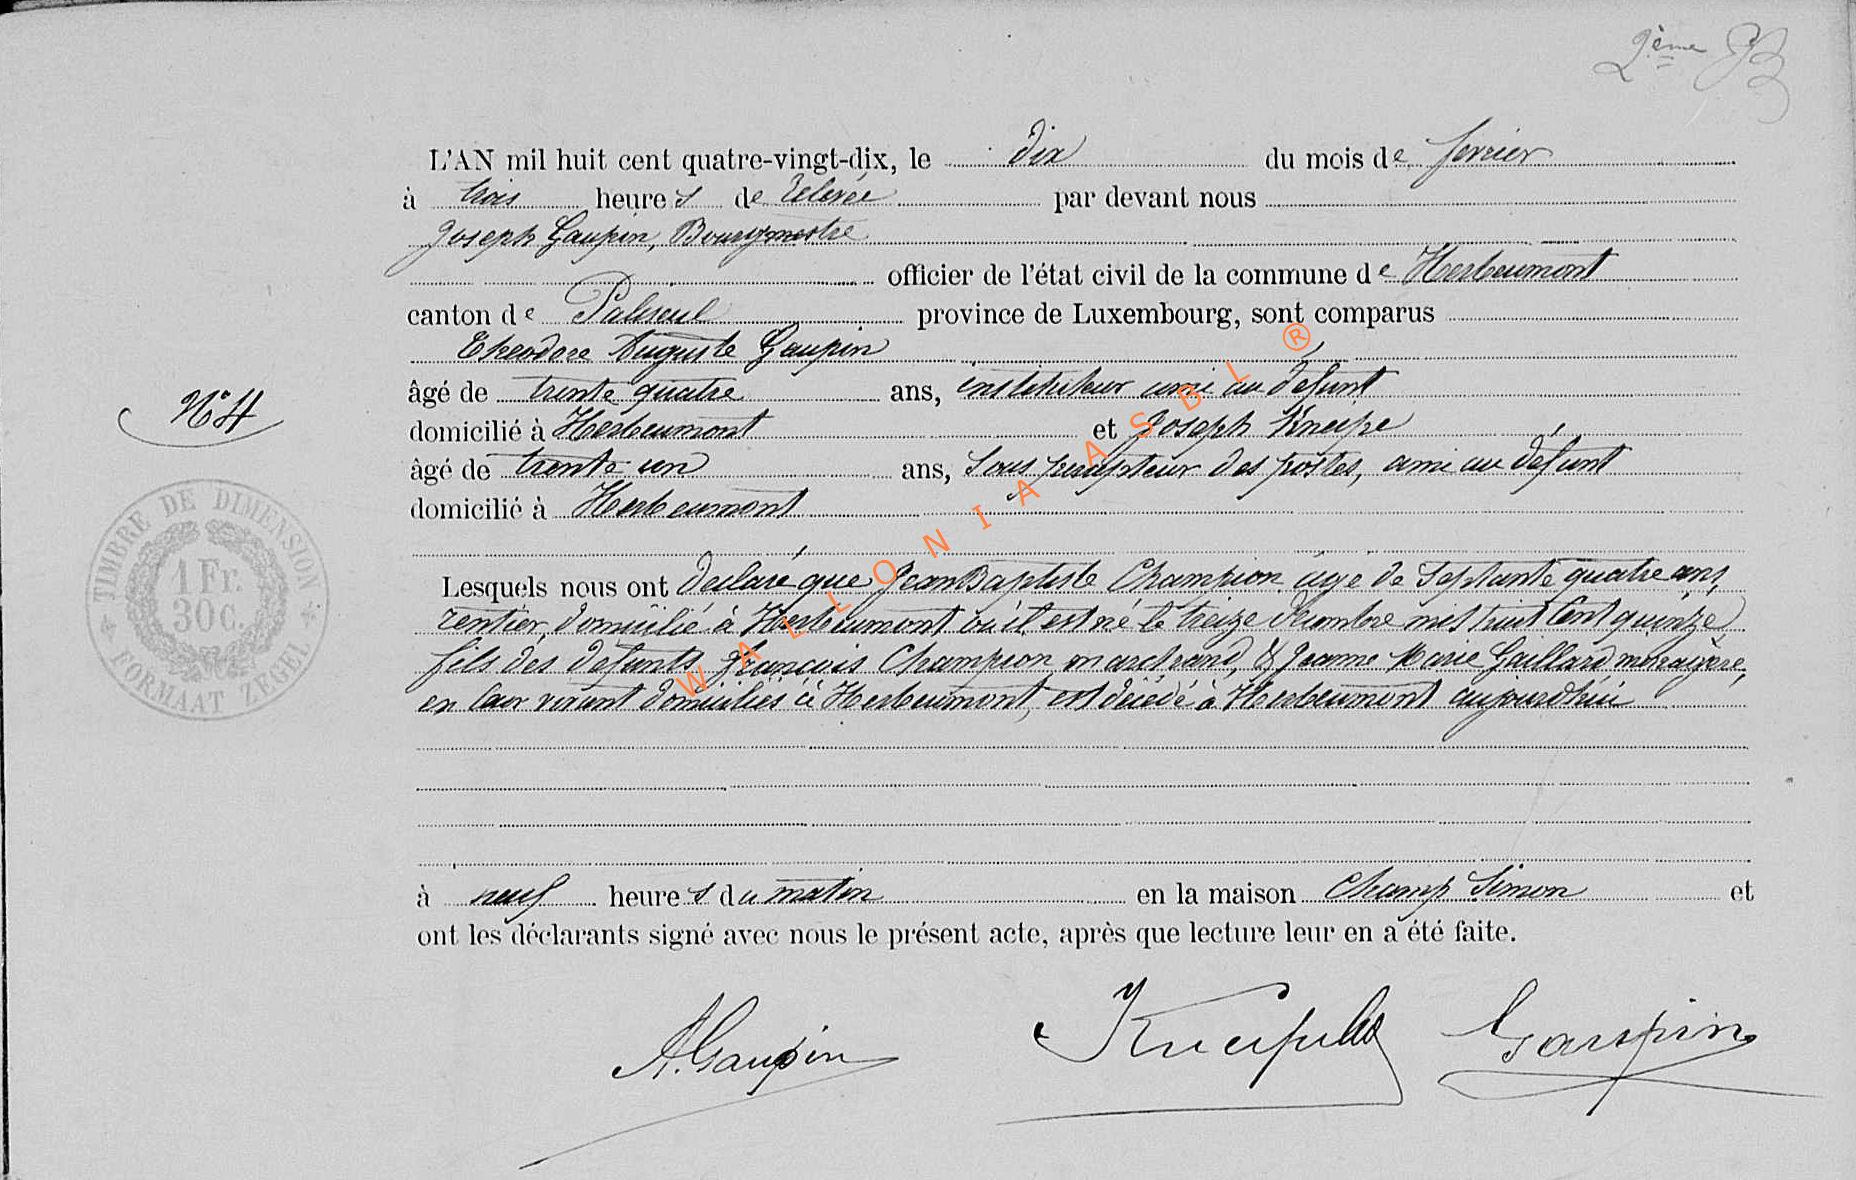 2ème
L'AN mil huit cent quatre-vingt-dix, le dix du mois de fevrier
à trois heures de relevée par devant nous
Joseph Gaupin, Bourgmestre
officier de l'état civil de la commune de Herbeumont
canton de Paliseul province de Luxembourg, sont comparus
Theodore Auguste Gaupin
âgé de trente quatre ans, instituteur ami au défunt
domicilié à Herbeumont et Joseph Kneipe
âgé de trente un ans, Sous percepteur des postes, ami au défunt
domicilié à Herbeumont
N° 4
TIMBRE DE DIMENSION
1 Fr.
30 c.
FORMAAT ZEGEL
Lesquels nous ont déclaré que Jean Baptiste Champion age de Septante quatre ans,
rentier, domicilié à Herbeumont où il est né le treize décembre mil huit Cent quinze,
fils des defunts François Champion marchand, & Jeanne Marie Gaillard ménagère,
en leur vivant domiciliés à Herbeumont, est décédé à Herbeumont aujourdhui
à neuf heures du matin en la maison Champ Simon et
ont les déclarants signé avec nous le présent acte, après que lecture leur en a été faite.
A. Gaupin Gaupin
WALLONIA ASBL ®